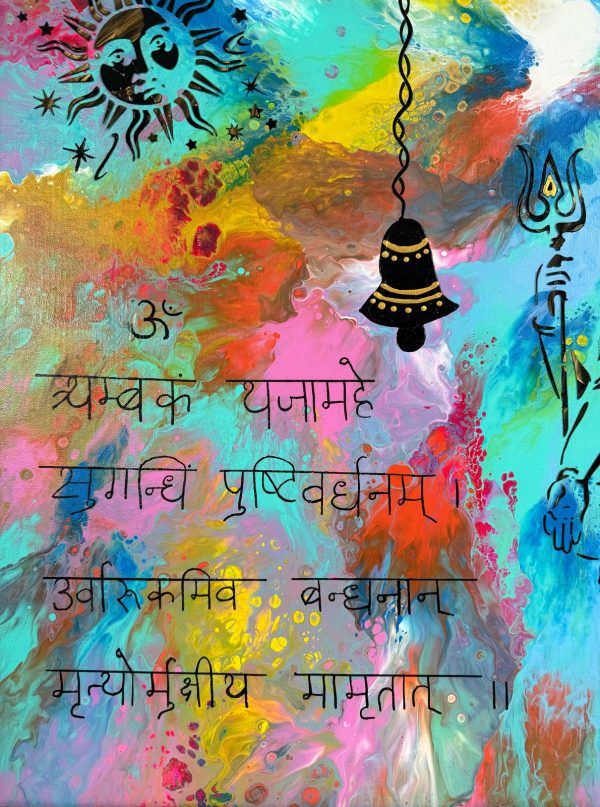 ॐ
त्र्यम्बकं यजामहे
सुगन्धिं पुष्टिवर्धनम् ।
उर्वारुकमिव बन्धनान्
मृत्योर्मुक्षीय मामृतात् ॥